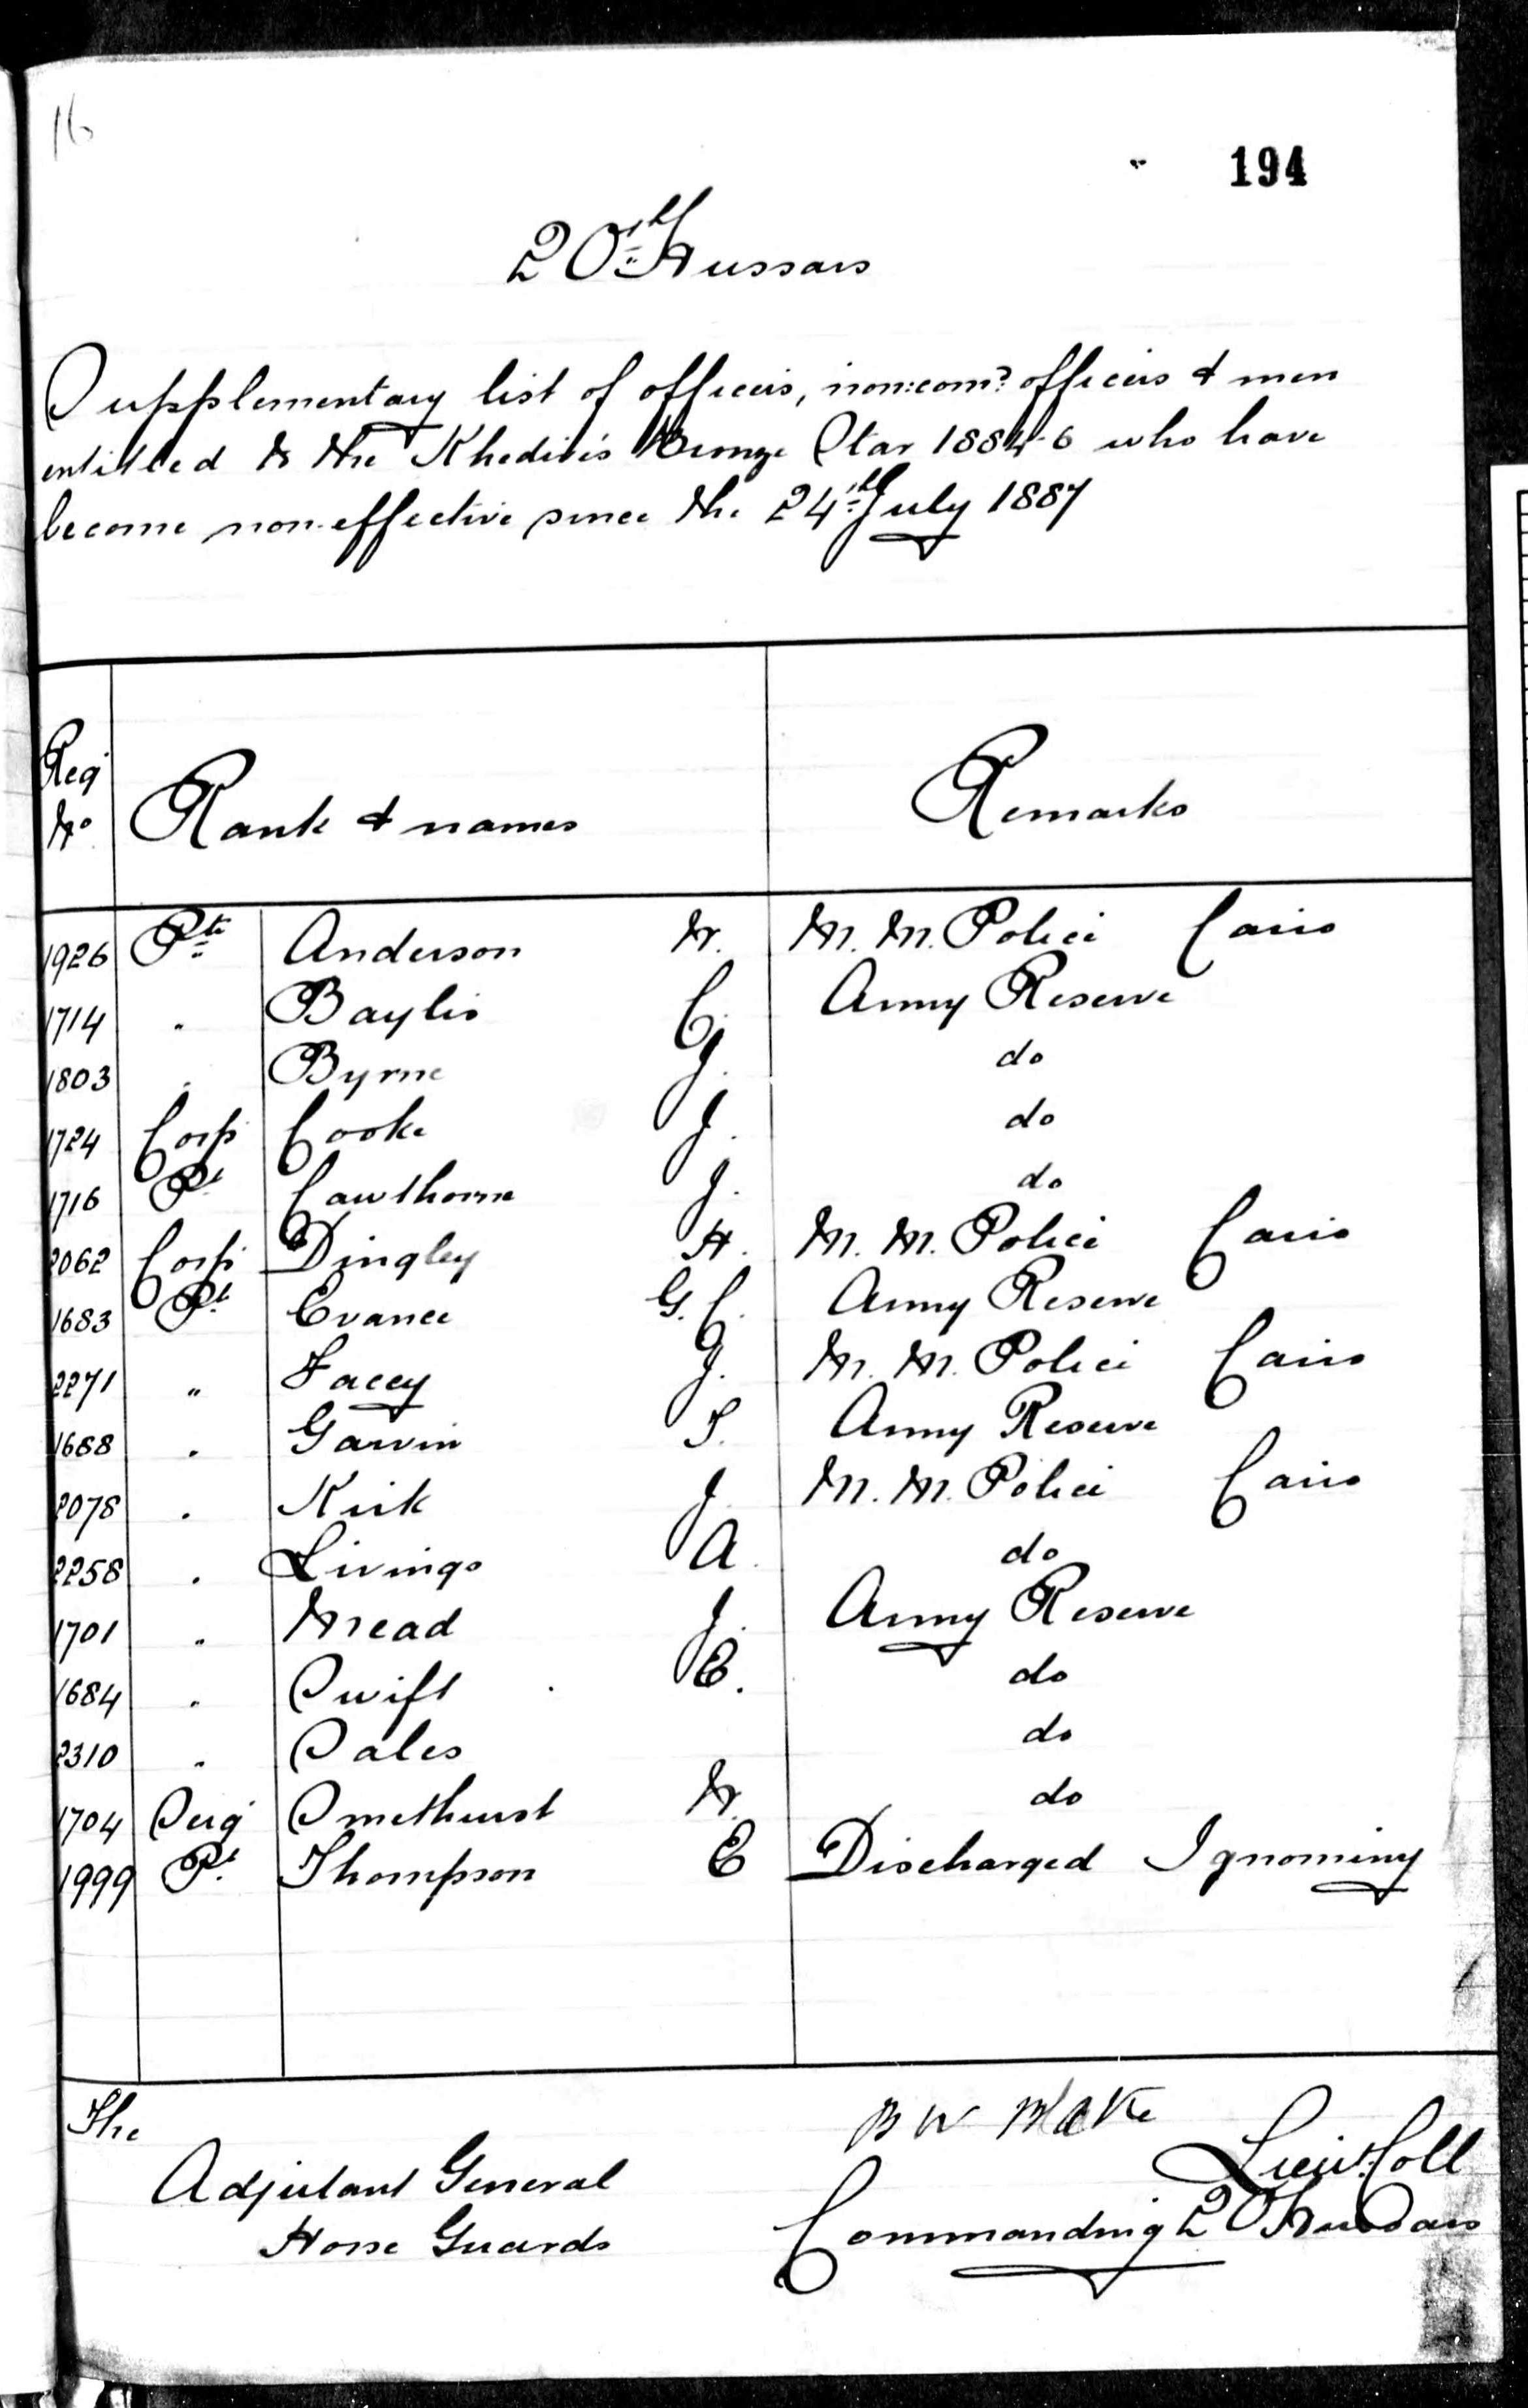 16
194
20th Hussars
Supplementary list of officers, non:com? officers & men
entitled to the Khedive's Bronze Star 1884-6 who have
become non-effective since the 24th July 1887
Reg No Rank & names Remarks
1926 Pte Anderson W. M. M. Police Cairo
1714 " Baylis C. Army Reserve
1803 " Byrne J. do
1724 Corp Cooke J. do
1716 Pt Cawthorne J. do
2062 Corp Dingley H. M. M. Police Cairo
1683 Pt Evance G. C. Army Reserve
2271 " Facey J. M. M. Police Cairo
1688 " Garvin T. Army Reserve
2078 " Kirk J. M. M. Police Cairo
2258 " Livings A. do
1701 " Mead J. Army Reserve
1684 " Swift E. do
2310 " Sales do
1704 Serg Smethurst W. do
1999 Pt Thompson E Discharged Ignominy
The
Adjutant General
Horse Guards
B W Blake
Lieut Coll
Commanding 20 Hussars